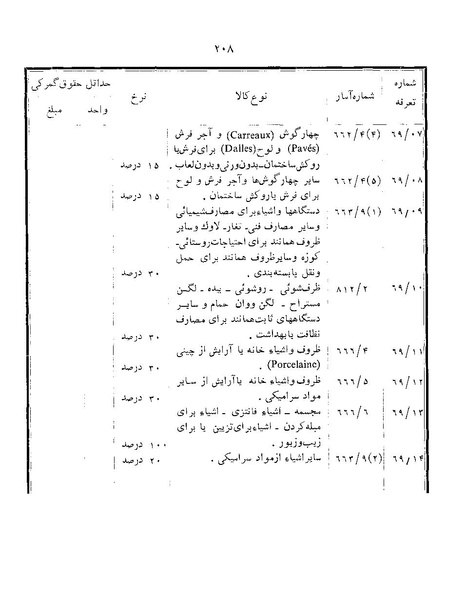 ۲۰۸
شماره تعرفه شماره آمار نوع کالا نرخ حداقل حقوق گمرکی
واحد مبلغ
۶۹/۰۷ ۶۶۲/۴(۴) چهارگوش (Carreaux) و آجر فرش
(Pavés) و لوح (Dalles) برای فرش یا
روکش ساختمان ـ بدون ورنی و بدون لعاب. ۱۵ درصد
۶۹/۰۸ ۶۶۲/۴(۵) سایر چهارگوش‌ها و آجر فرش و لوح
برای فرش یا روکش ساختمان . ۱۵ درصد
۶۹/۰۹ ۶۶۳/۹(۱) دستگاهها و اشیاء برای مصارف شیمیائی
و سایر مصارف فنی ـ تغار ـ لاوک و سایر
ظروف همانند برای احتیاجات روستائی ـ
کوزه و سایر ظروف همانند برای حمل
و نقل یا بسته‌بندی . ۳۰ درصد
۶۹/۱۰ ۸۱۲/۲ ظرفشوئی ـ روشوئی ـ بیده ـ لگن
مستراح ـ لگن و وان حمام و سایر
دستگاههای ثابت همانند برای مصارف
نظافت یا بهداشت . ۳۰ درصد
۶۹/۱۱ ۶۶۶/۴ ظروف و اشیاء خانه یا آرایش از چینی
(Porcelaine) . ۳۰ درصد
۶۹/۱۲ ۶۶۶/۵ ظروف و اشیاء خانه یا آرایش از سایر
مواد سرامیکی . ۳۰ درصد
۶۹/۱۳ ۶۶۶/۶ مجسمه ـ اشیاء فانتزی ـ اشیاء برای
مبله کردن ـ اشیاء برای تزیین یا برای
زیب و زیور . ۱۰۰ درصد
۶۹/۱۴ ۶۶۳/۹(۲) سایر اشیاء از مواد سرامیکی . ۲۰ درصد